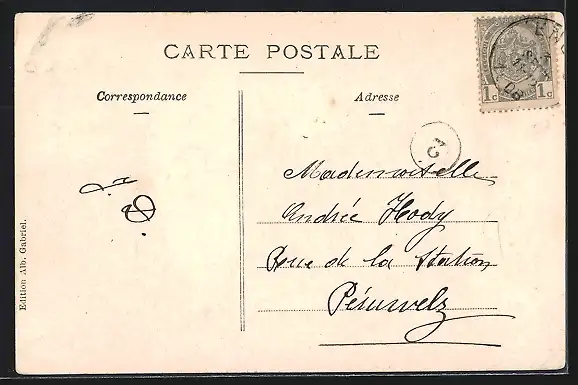 CARTE POSTALE
Correspondance
Adresse
1c 1c
Mademoiselle
Andrée Hody
Rue de la Station
Péruwelz
Edition Alb. Gabriel.